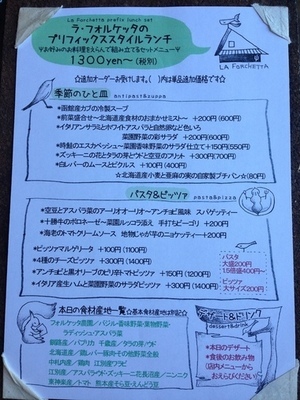 La Forchetta prefix lunch set
ラ・フォルケッタの
プリフィックススタイルランチ
♥お好みのお料理をえらんで組み立てるセットメニュー♥
1300yen〜(税別)
LA FORCHETTA
☆追加オーダーお受けします。( )内は単品追加価格です☆
季節のひと皿 antipast&zuppa
*函館産カブの冷製スープ
*前菜盛合せ〜北海道産食材のおまかせミスト〜 +200円(600円)
*イタリアンサラミとホワイトアスパラと自然卵など色いろ
菜園野菜の彩サラダ +200円(600円)
*時鮭のエスカベッシュ〜菜園香味野菜のサラダ仕立て+150円(550円)
+300円(700円)
*白レバーのムースとピクルス +100円(400円)
☆北海道産小麦と亜麻の実の自家製プチパン☆(80円)
パスタ&ピッツァ pasta&pizza
*空豆とアスパラ菜のアーリオオーリオ〜アンチョビ風味 スパゲッティー
*十勝牛のボロネーゼ〜菜園ルッコラ添え 手打ちピーゴリ +200円
*海老のトマトクリームソース 地物じゃが芋のニョケッティー+200円
*ピッツァマルゲリータ +100円(1100円)
*4種のチーズピッツァ +300円(1400円)
*アンチョビと黒オリーブのピリ辛トマトピッツァ +150円(1200円)
*イタリア産生ハムと菜園野菜のサラダピッツァ +300円(1400円)
パスタ
大盛200円
1.5倍盛400円〜
ピッツァ
大サイズ200円
本日の食材産地一覧☆基本食材産地は別記☆
フォルケッタ農園/バジル・香味野菜・葉物野菜・
ラディッシュ・アスパラ菜
北海道産/鶏レバー・豚肉・その他野菜全般
中札内産/鶏肉 江別産/
デザート&ドリンク
dessert&drink
*本日のデザート
*食後のお飲み物
(店内メニューから
おえらびください)